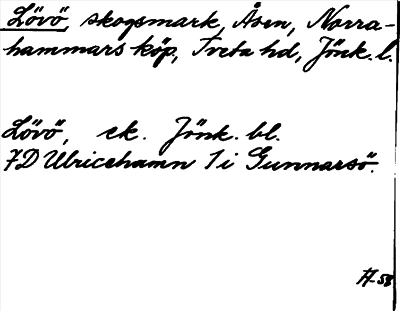 Lövö, skogsmark, Åsen, Norra-
hammars köp, Tveta hd, Jönk. l.
Lövö, ek. Jönk. bl.
7D Ulricehamn 1 i Gunnarsö.
A-58